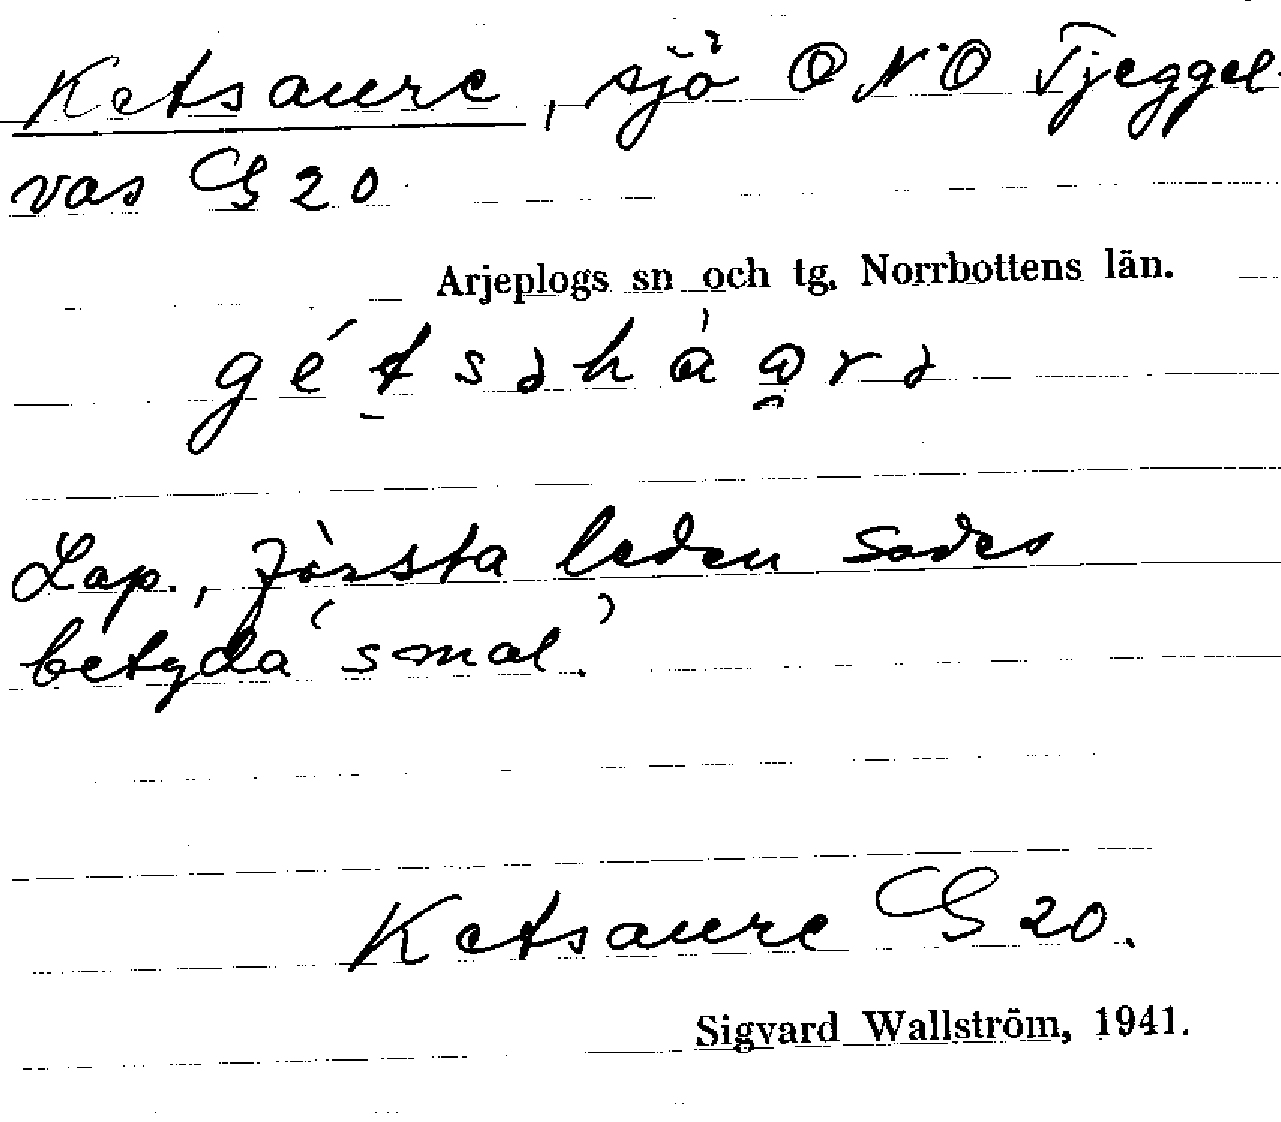 Ketsaure, sjö ONO Tjeggel-
vas G 20
Arjeplogs sn och tg. Norrbottens län.
Lap., första leden sades
betyda 'smal.'
Ketsaure G 20.
Sigvard Wallström, 1941.